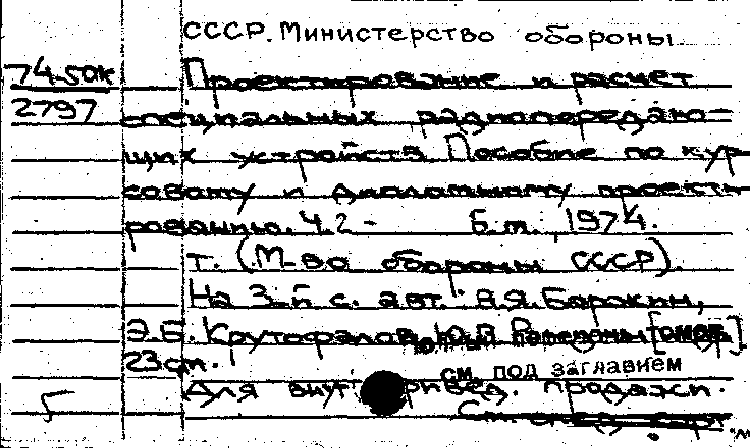 СССР. Министерство обороны
74-50к
2797
Проектирование и расчет
специальных радиопередаю-
щих устройств. Пособие по кур-
совому и дипломному проекти-
рованию. Ч.2 - Б.м., 1974.
т. (М-во обороны СССР).
На 3-й с. авт.: В.Я. Барокин,
Э.Б. Крутофалов, Ю.В.
23 см.
см. под заглавием
Для внут вед. продажи.
5